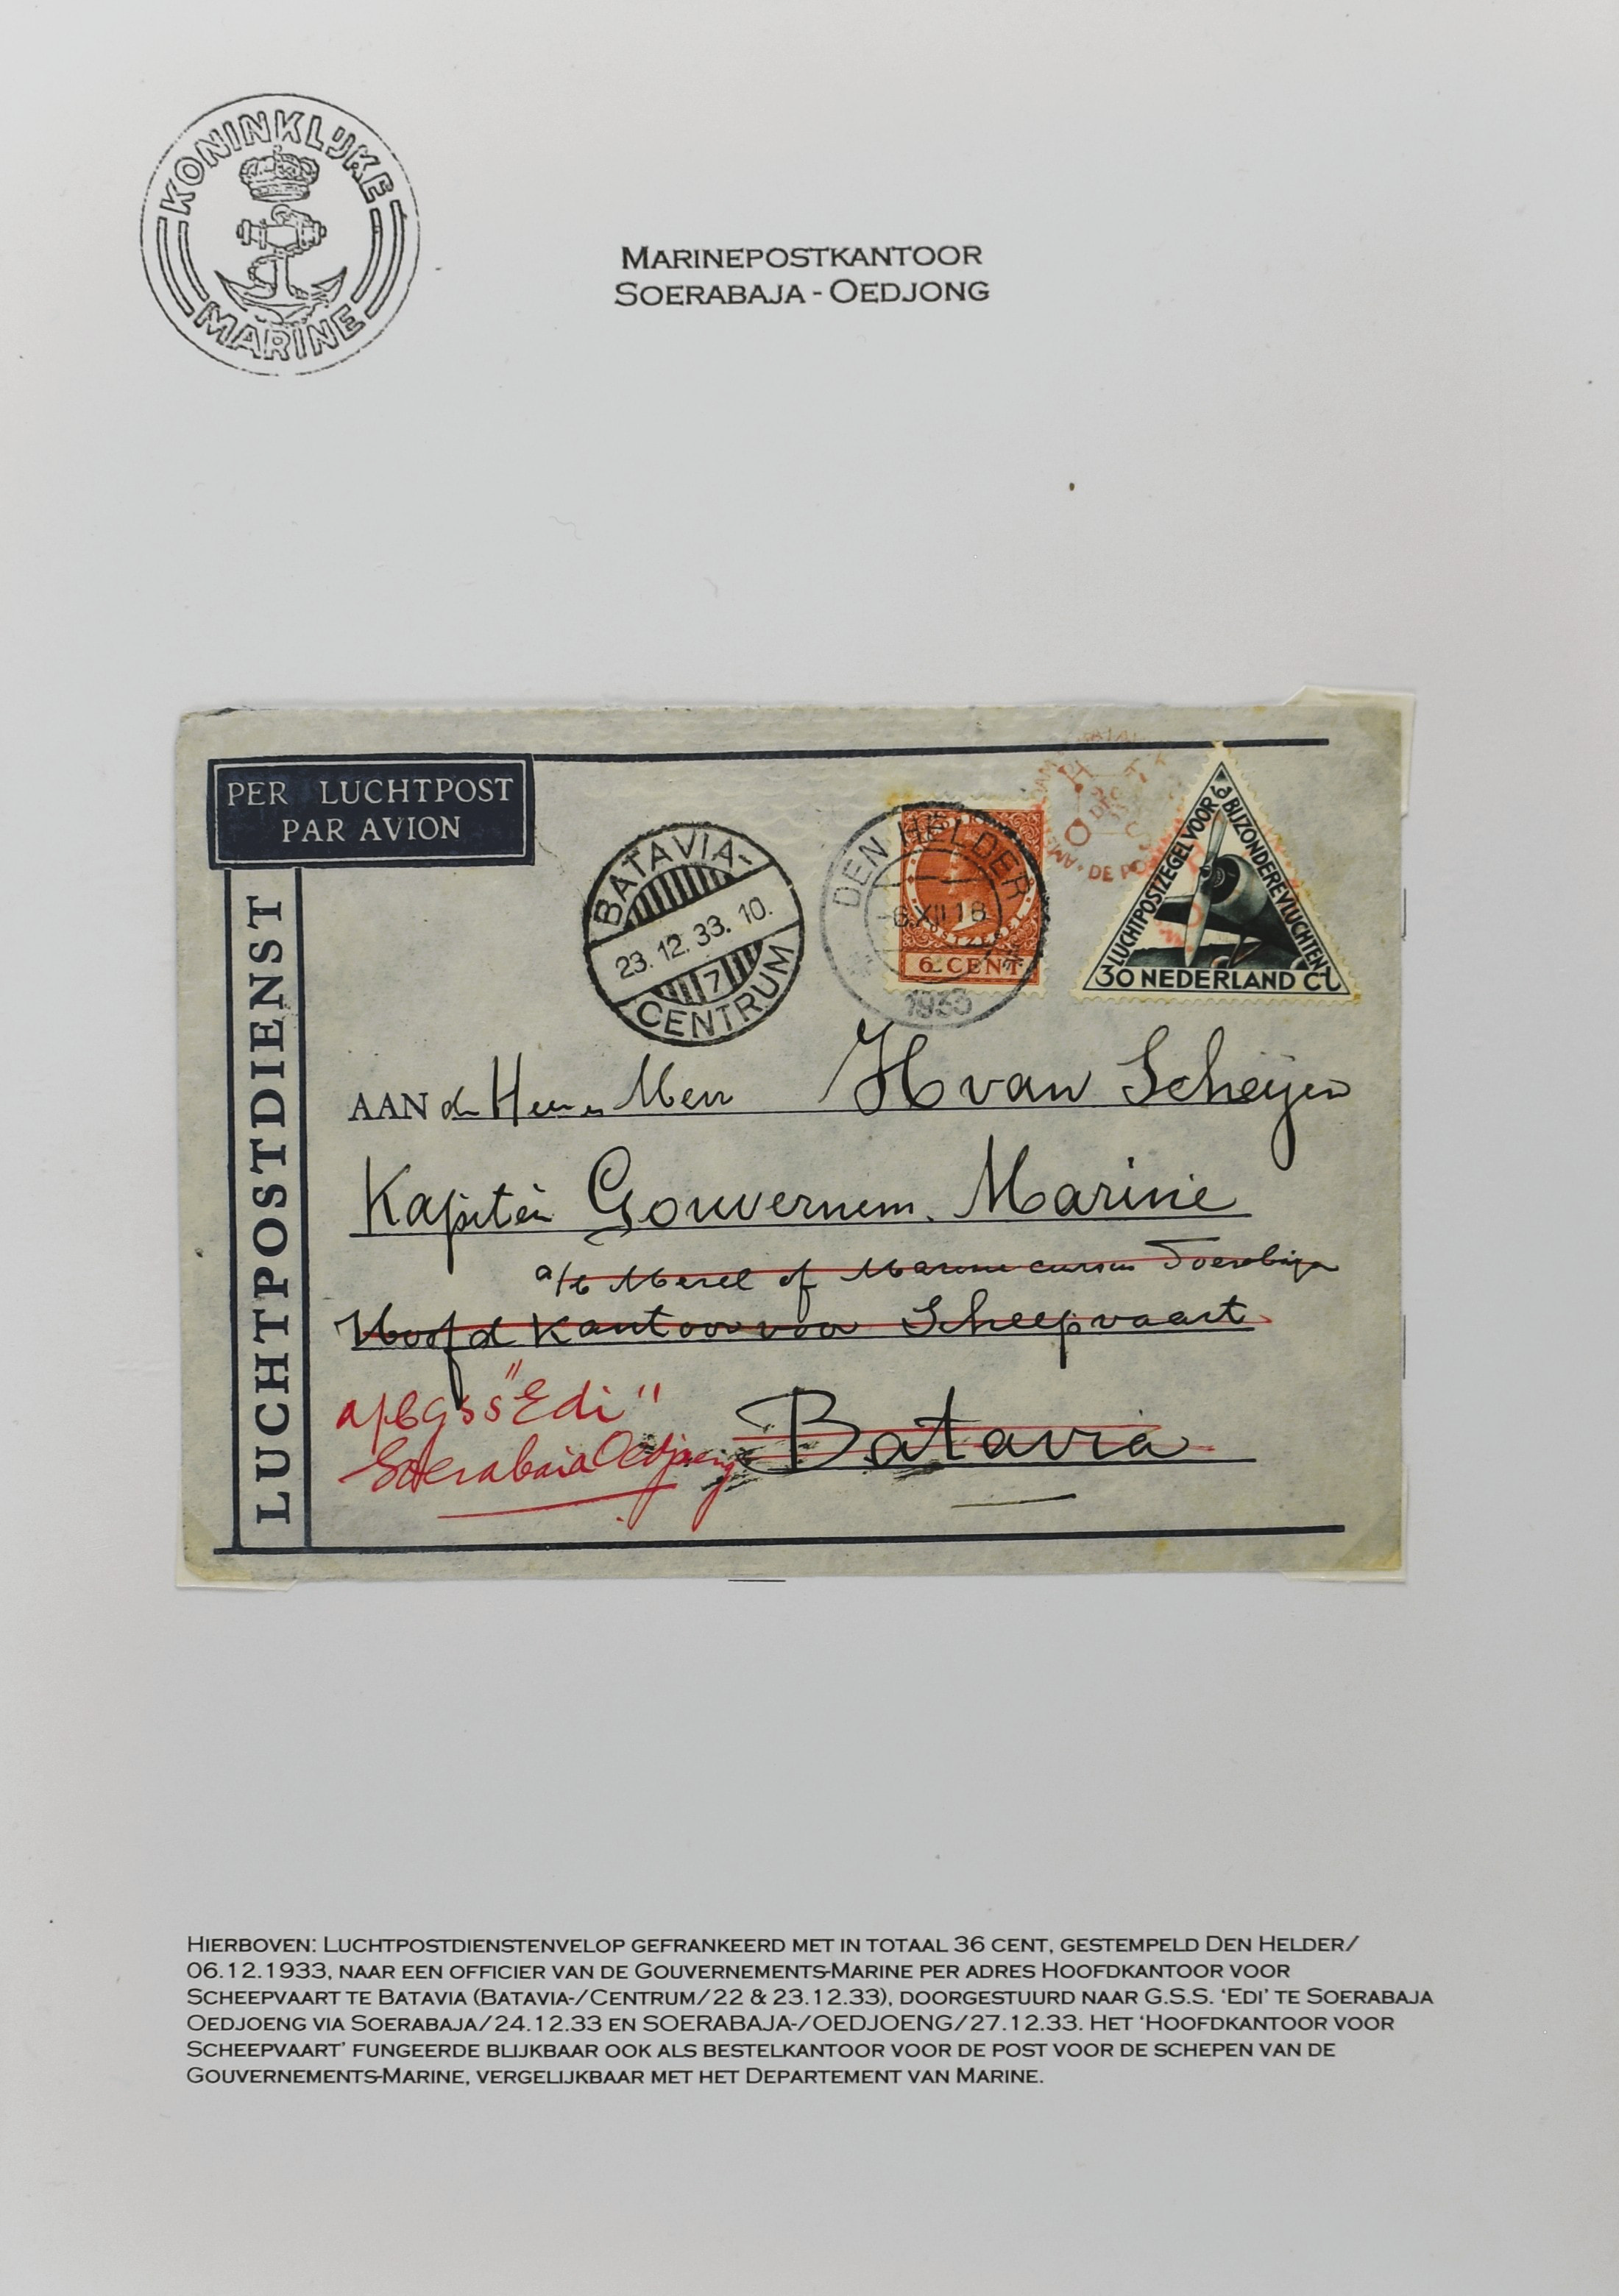 KONINKLIJKE
MARINE
MARINEPOSTKANTOOR
SOERABAJA - OEDJONG
PER LUCHTPOST
PAR AVION
LUCHTPOSTDIENST
BATAVIA-
23.12.33.10.
7
CENTRUM
DEN HELDER
6.XII.18
1933
6 CENT
LUCHTPOSTZEGEL VOOR BIJZONDERE VLUCHTEN
30 NEDERLAND CT
AAN H van Scheijen
Kapitein Gouvernem. Marine
a/b Merel of Marine cursus Soerabaja
Hoofd Kantoor voor Scheepvaart
a/b GSS "Edi"
Soerabaia Oedjoeng
Batavia
HIERBOVEN: LUCHTPOSTDIENSTENVELOP GEFRANKEERD MET IN TOTAAL 36 CENT, GESTEMPELD DEN HELDER/
06.12.1933, NAAR EEN OFFICIER VAN DE GOUVERNEMENTS-MARINE PER ADRES HOOFDKANTOOR VOOR
SCHEEPVAART TE BATAVIA (BATAVIA-/CENTRUM/22 & 23.12.33), DOORGESTUURD NAAR G.S.S. ‘EDI’ TE SOERABAJA
OEDJOENG VIA SOERABAJA/24.12.33 EN SOERABAJA-/OEDJOENG/27.12.33. HET ‘HOOFDKANTOOR VOOR
SCHEEPVAART’ FUNGEERDE BLIJKBAAR OOK ALS BESTELKANTOOR VOOR DE POST VOOR DE SCHEPEN VAN DE
GOUVERNEMENTS-MARINE, VERGELIJKBAAR MET HET DEPARTEMENT VAN MARINE.